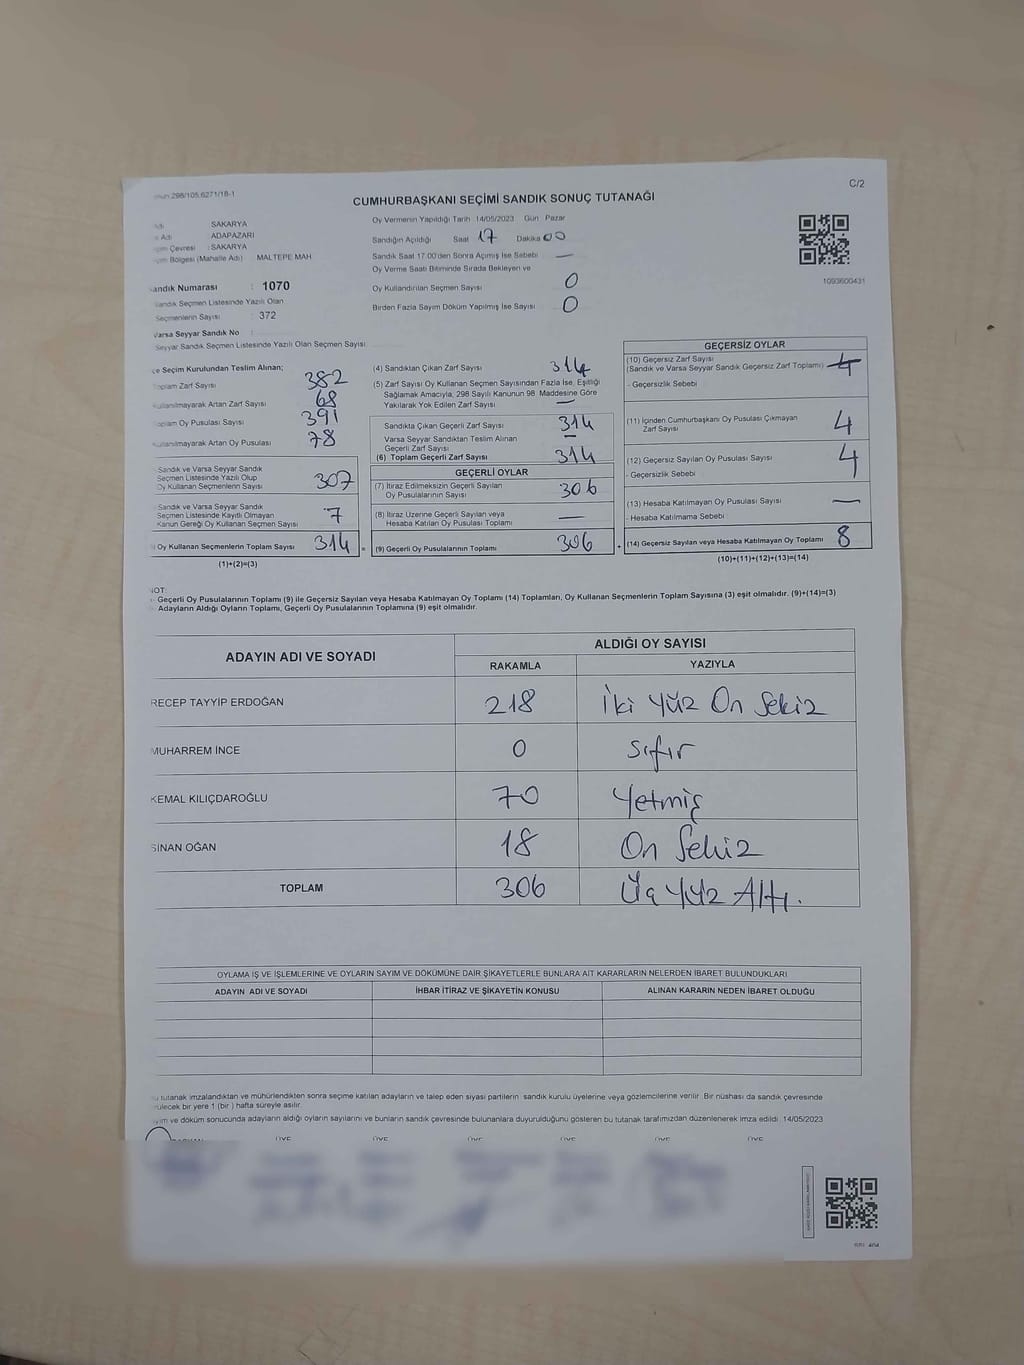 298/105,6271/18-1
C/2
CUMHURBAŞKANI SEÇİMİ SANDIK SONUÇ TUTANAĞI
SAKARYA
Adı ADAPAZARI
Çevresi : SAKARYA
Bölgesi (Mahalle Adı) MALTEPE MAH
Oy Vermenin Yapıldığı Tarih 14/05/2023 Gün Pazar
Sandığın Açıldığı Saat 17 Dakika 00
Sandık Saat 17.00'den Sonra Açımış İse Sebebi —
Oy Verme Saati Bitiminde Sırada Bekleyen ve
Oy Kullandırılan Seçmen Sayısı 0
Birden Fazla Sayım Döküm Yapılmış İse Sayısı 0
1093600431
andık Numarası : 1070
Sandık Seçmen Listesinde Yazılı Olan
Seçmenlerin Sayısı : 372
Varsa Seyyar Sandık No :
Seyyar Sandık Seçmen Listesinde Yazılı Olan Seçmen Sayısı
çe Seçim Kurulundan Teslim Alınan;
Toplam Zarf Sayısı 382
Kullanılmayarak Artan Zarf Sayısı 68
Toplam Oy Pusulası 391
Kullanılmayarak Artan Oy Pusulası 78
Sandık ve Varsa Seyyar Sandık
Seçmen Listesinde Yazılı Olup
Oy Kullanan Seçmenlerin Sayısı 307
Sandık ve Varsa Seyyar Sandık
Seçmen Listesinde Kayıtlı Olmayan
Kanun Gereği Oy Kullanan Seçmen Sayısı 7
Oy Kullanan Seçmenlerin Toplam Sayısı 314
(1)+(2)=(3)
(4) Sandıktan Çıkan Zarf Sayısı 314
(5) Zarf Sayısı Oy Kullanan Seçmen Sayısından Fazla İse, Eşitliği
Sağlamak Amacıyla, 298 Sayılı Kanunun 98. Maddesine Göre
Yakılarak Yok Edilen Zarf Sayısı —
Sandıkta Çıkan Geçerli Zarf Sayısı 314
Varsa Seyyar Sandıktan Teslim Alınan
Geçerli Zarf Sayısı —
(6) Toplam Geçerli Zarf Sayısı 314
GEÇERLİ OYLAR
(7) İtiraz Edilmeksizin Geçerli Sayılan
Oy Pusulalarının Sayısı 306
(8) İtiraz Üzerine Geçerli Sayılan veya
Hesaba Katılan Oy Pusulası Toplamı —
(9) Geçerli Oy Pusulalarının Toplamı 306
GEÇERSİZ OYLAR
(10) Geçersiz Zarf Sayısı
(Sandık ve Varsa Seyyar Sandık Geçersiz Zarf Toplamı)
- Geçersizlik Sebebi
(11) İçinden Cumhurbaşkanı Oy Pusulası Çıkmayan
Zarf Sayısı 4
(12) Geçersiz Sayılan Oy Pusulası Sayısı 4
- Geçersizlik Sebebi
(13) Hesaba Katılmayan Oy Pusulası Sayısı —
- Hesaba Katılmama Sebebi
(14) Geçersiz Sayılan veya Hesaba Katılmayan Oy Toplamı 8
(10)+(11)+(12)+(13)=(14)
NOT:
Geçerli Oy Pusulalarının Toplamı (9) ile Geçersiz Sayılan veya Hesaba Katılmayan Oy Toplamı (14) Toplamları, Oy Kullanan Seçmenlerin Toplam Sayısına (3) eşit olmalıdır. (9)+(14)=(3)
Adayların Aldığı Oyların Toplamı, Geçerli Oy Pusulalarının Toplamına (9) eşit olmalıdır.
ADAYIN ADI VE SOYADI ALDIĞI OY SAYISI
RAKAMLA YAZIYLA
RECEP TAYYİP ERDOĞAN 218 İki Yüz On Sekiz
MUHARREM İNCE 0 sıfır
KEMAL KILIÇDAROĞLU 70 Yetmiş
SİNAN OĞAN 18 On Sekiz
TOPLAM 306 Üç Yüz Altı.
OYLAMA İŞ VE İŞLEMLERİNE VE OYLARIN SAYIM VE DÖKÜMÜNE DAİR ŞİKAYETLERLE BUNLARA AİT KARARLARIN NELERDEN İBARET BULUNDUKLARI
ADAYIN ADI VE SOYADI İHBAR İTİRAZ VE ŞİKAYETİN KONUSU ALINAN KARARIN NEDEN İBARET OLDUĞU
u tutanak imzalandıktan ve mühürlendikten sonra seçime katılan adayların ve talep eden siyasi partilerin sandık kurulu üyelerine veya gözlemcilerine verilir. Bir nüshası da sandık çevresinde
rülecek bir yere 1 (bir ) hafta süreyle asılır.
ayım ve döküm sonucunda adayların aldığı oyların sayılarını ve bunların sandık çevresinde bulunanlara duyurulduğunu gösteren bu tutanak tarafımızdan düzenlenerek imza edildi. 14/05/2023
ÜYE ÜYE ÜYE ÜYE ÜYE ÜYE